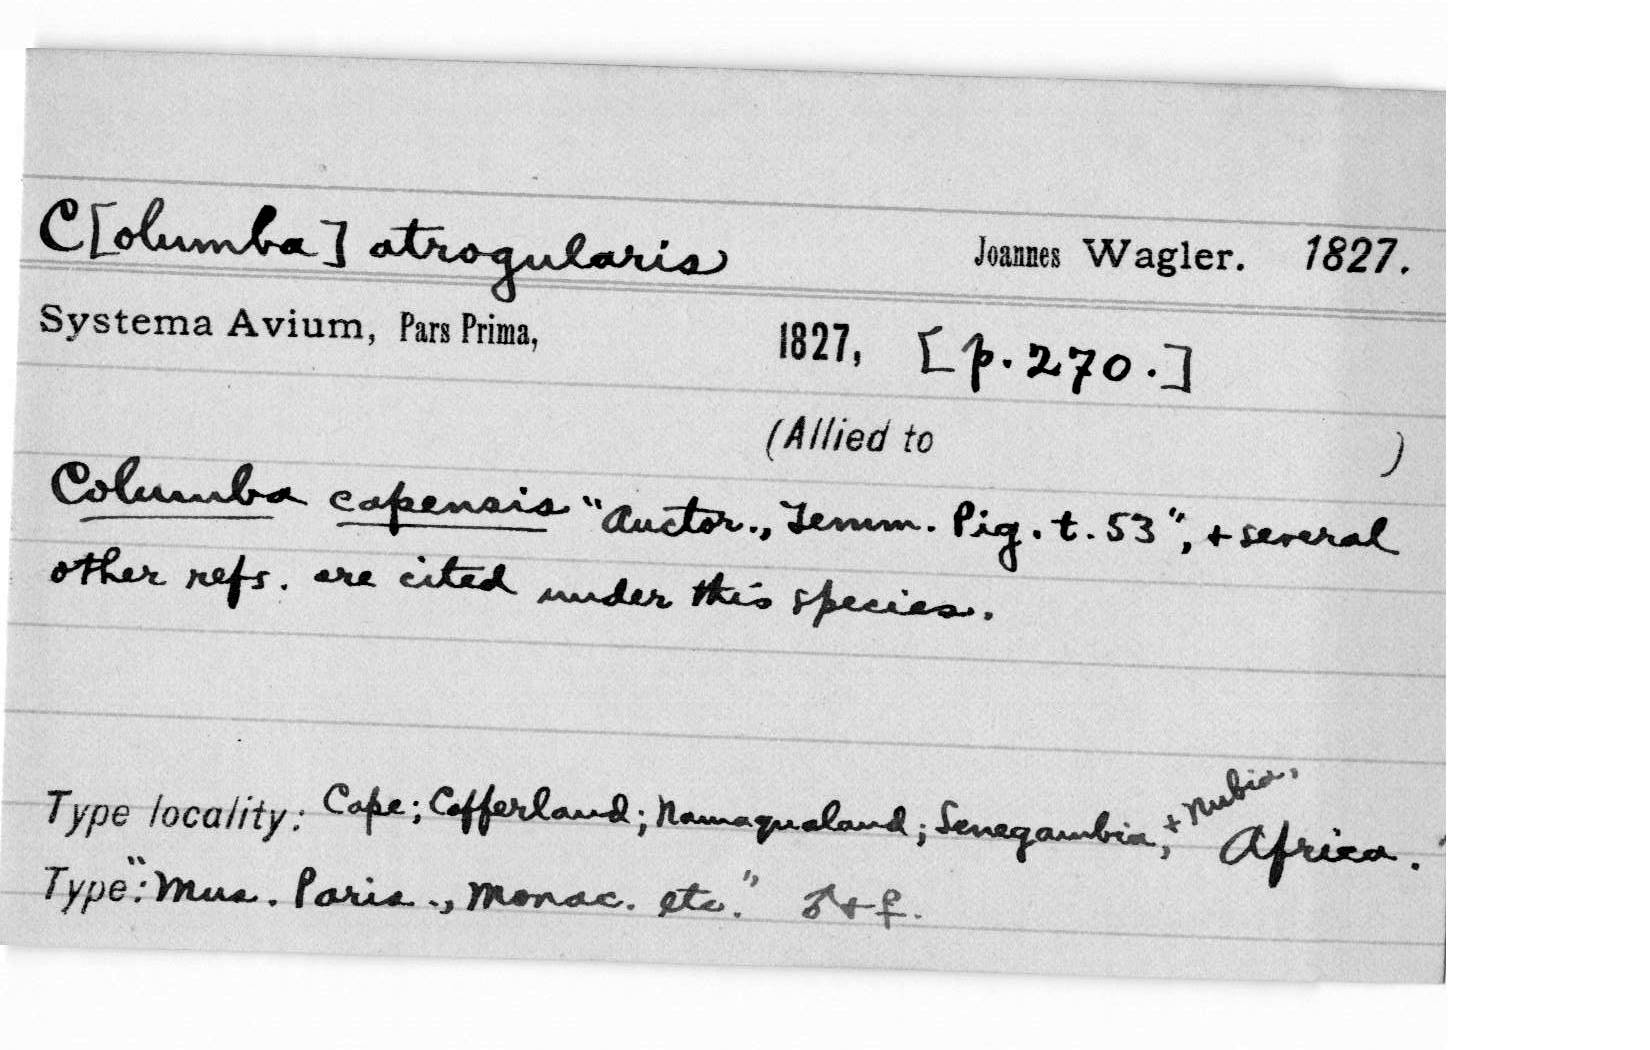 C[olumba] atrogularis Joannes Wagler. 1827.
Systema Avium, Pars Prima, 1827, [p. 270.]
(Allied to )
Columba capensis "Auctor., Temm. Pig. t. 53", + several
other refs. are cited under this species.
Type locality: Cape; Cafferland; Namaqualand; Senegambia, + Nubia, Africa.
Type: "Mus. Paris., Monac. etc." ♂ + ♀.